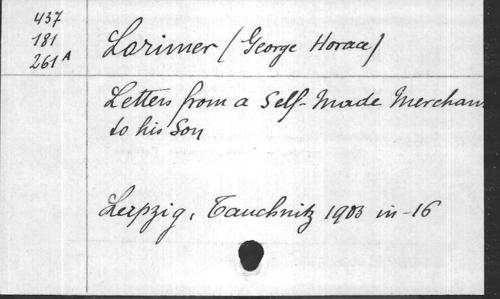 437
181
261 A
Lorimer (George Horace)
Letters from a Self-Made Merchan
to his Son
Leipzig, Tauchnitz 1903 in-16